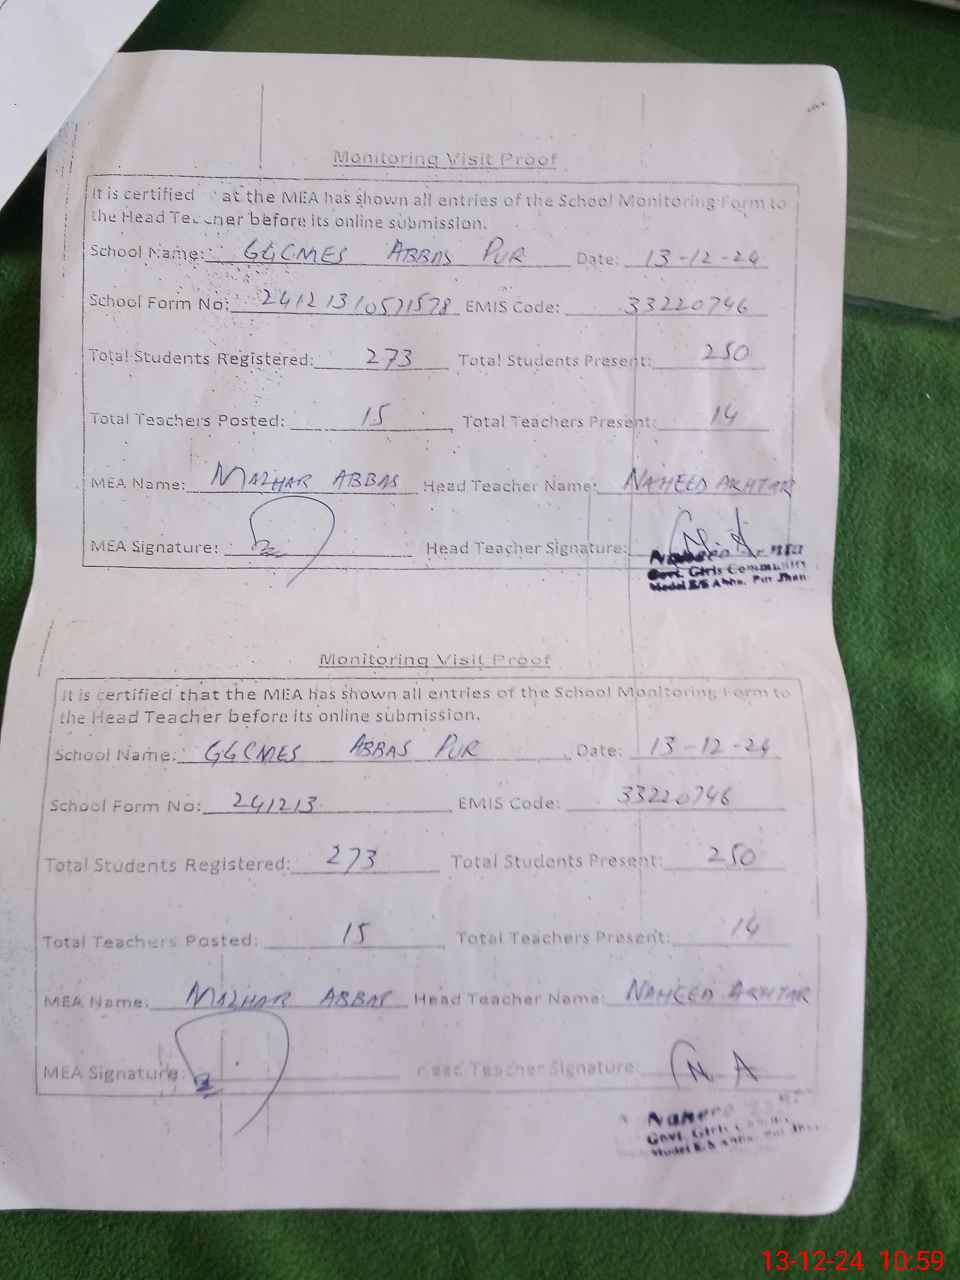 Monitoring Visit Proof
It is certified at the MEA has shown all entries of the School Monitoring Form to
the Head Teacher before its online submission.
School Name: GGCMES ABBAS PUR Date: 13-12-24
School Form No: 24121310571578 EMIS Code: 33220746
Total Students Registered: 273 Total Students Present: 250
Total Teachers Posted: 15 Total Teachers Present: 14
MEA Name: MAZHAR ABBAS Head Teacher Name: NAHEED AKHTAR
MEA Signature: Head Teacher Signature: N.A
Govt. Girls Community
Model E/S Abba. Pur Jhan
Monitoring Visit Proof
It is certified that the MEA has shown all entries of the School Monitoring Form to
the Head Teacher before its online submission.
School Name: GGCMES ABBAS PUR Date: 13-12-24
School Form No: 241213 EMIS Code: 33220746
Total Students Registered: 273 Total Students Present: 250
Total Teachers Posted: 15 Total Teachers Present: 14
MEA Name: MAZHAR ABBAS Head Teacher Name: NAHEED AKHTAR
MEA Signature: Head Teacher Signature: N A
Govt. Girls
Model E/S
13-12-24 10:59